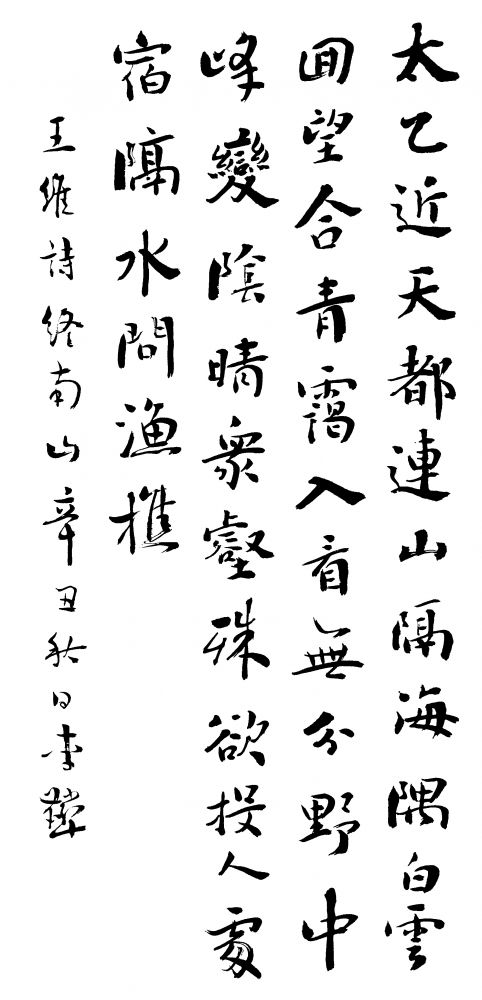 太乙近天都連山隔海隅白雲
回望合青靄入看無分野中
峰變陰晴眾壑殊欲投人處
宿隔水問漁樵
王維詩終南山辛丑秋日李